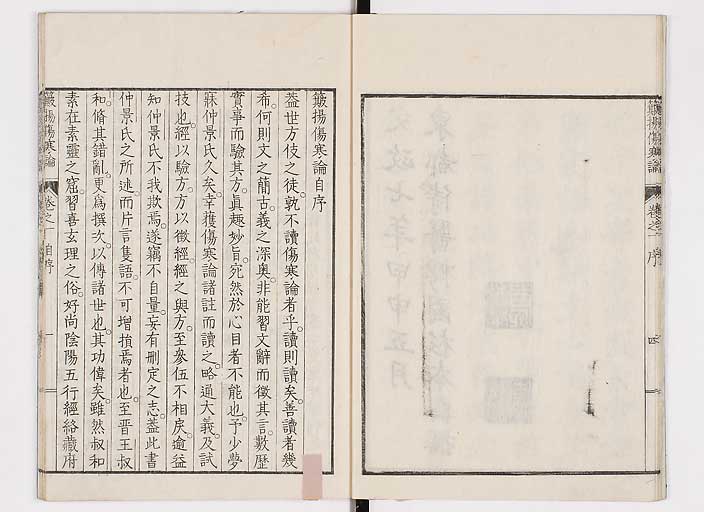 簸揚傷寒論
卷之一 序
四
簸揚傷寒論自序
蓋世方伎之徒。孰不讀傷寒論者乎。讀則讀矣。善讀者幾
希。何則文之簡古。義之深奧。非能習文辭而徵其言。數歷
實事而驗其方。眞趣妙旨。宛然於心目者不能也。予少夢
寐仲景氏久矣。幸獲傷寒論諸註而讀之。略通大義。及試
技也。經以驗方。方以徵經。經之與方。至參伍不相戾。逾益
知仲景氏不我欺焉。遂竊不自量。妄有刪定之志。蓋此書
仲景氏之所述。而片言隻語。不可增損焉者也。至晉王叔
和脩其錯亂。更爲撰次。以傳諸世也。其功偉矣。雖然叔和
素在素靈之窟。習喜玄理之俗。好尚陰陽五行經絡藏府
簸揚傷寒論
卷之一 自序
一